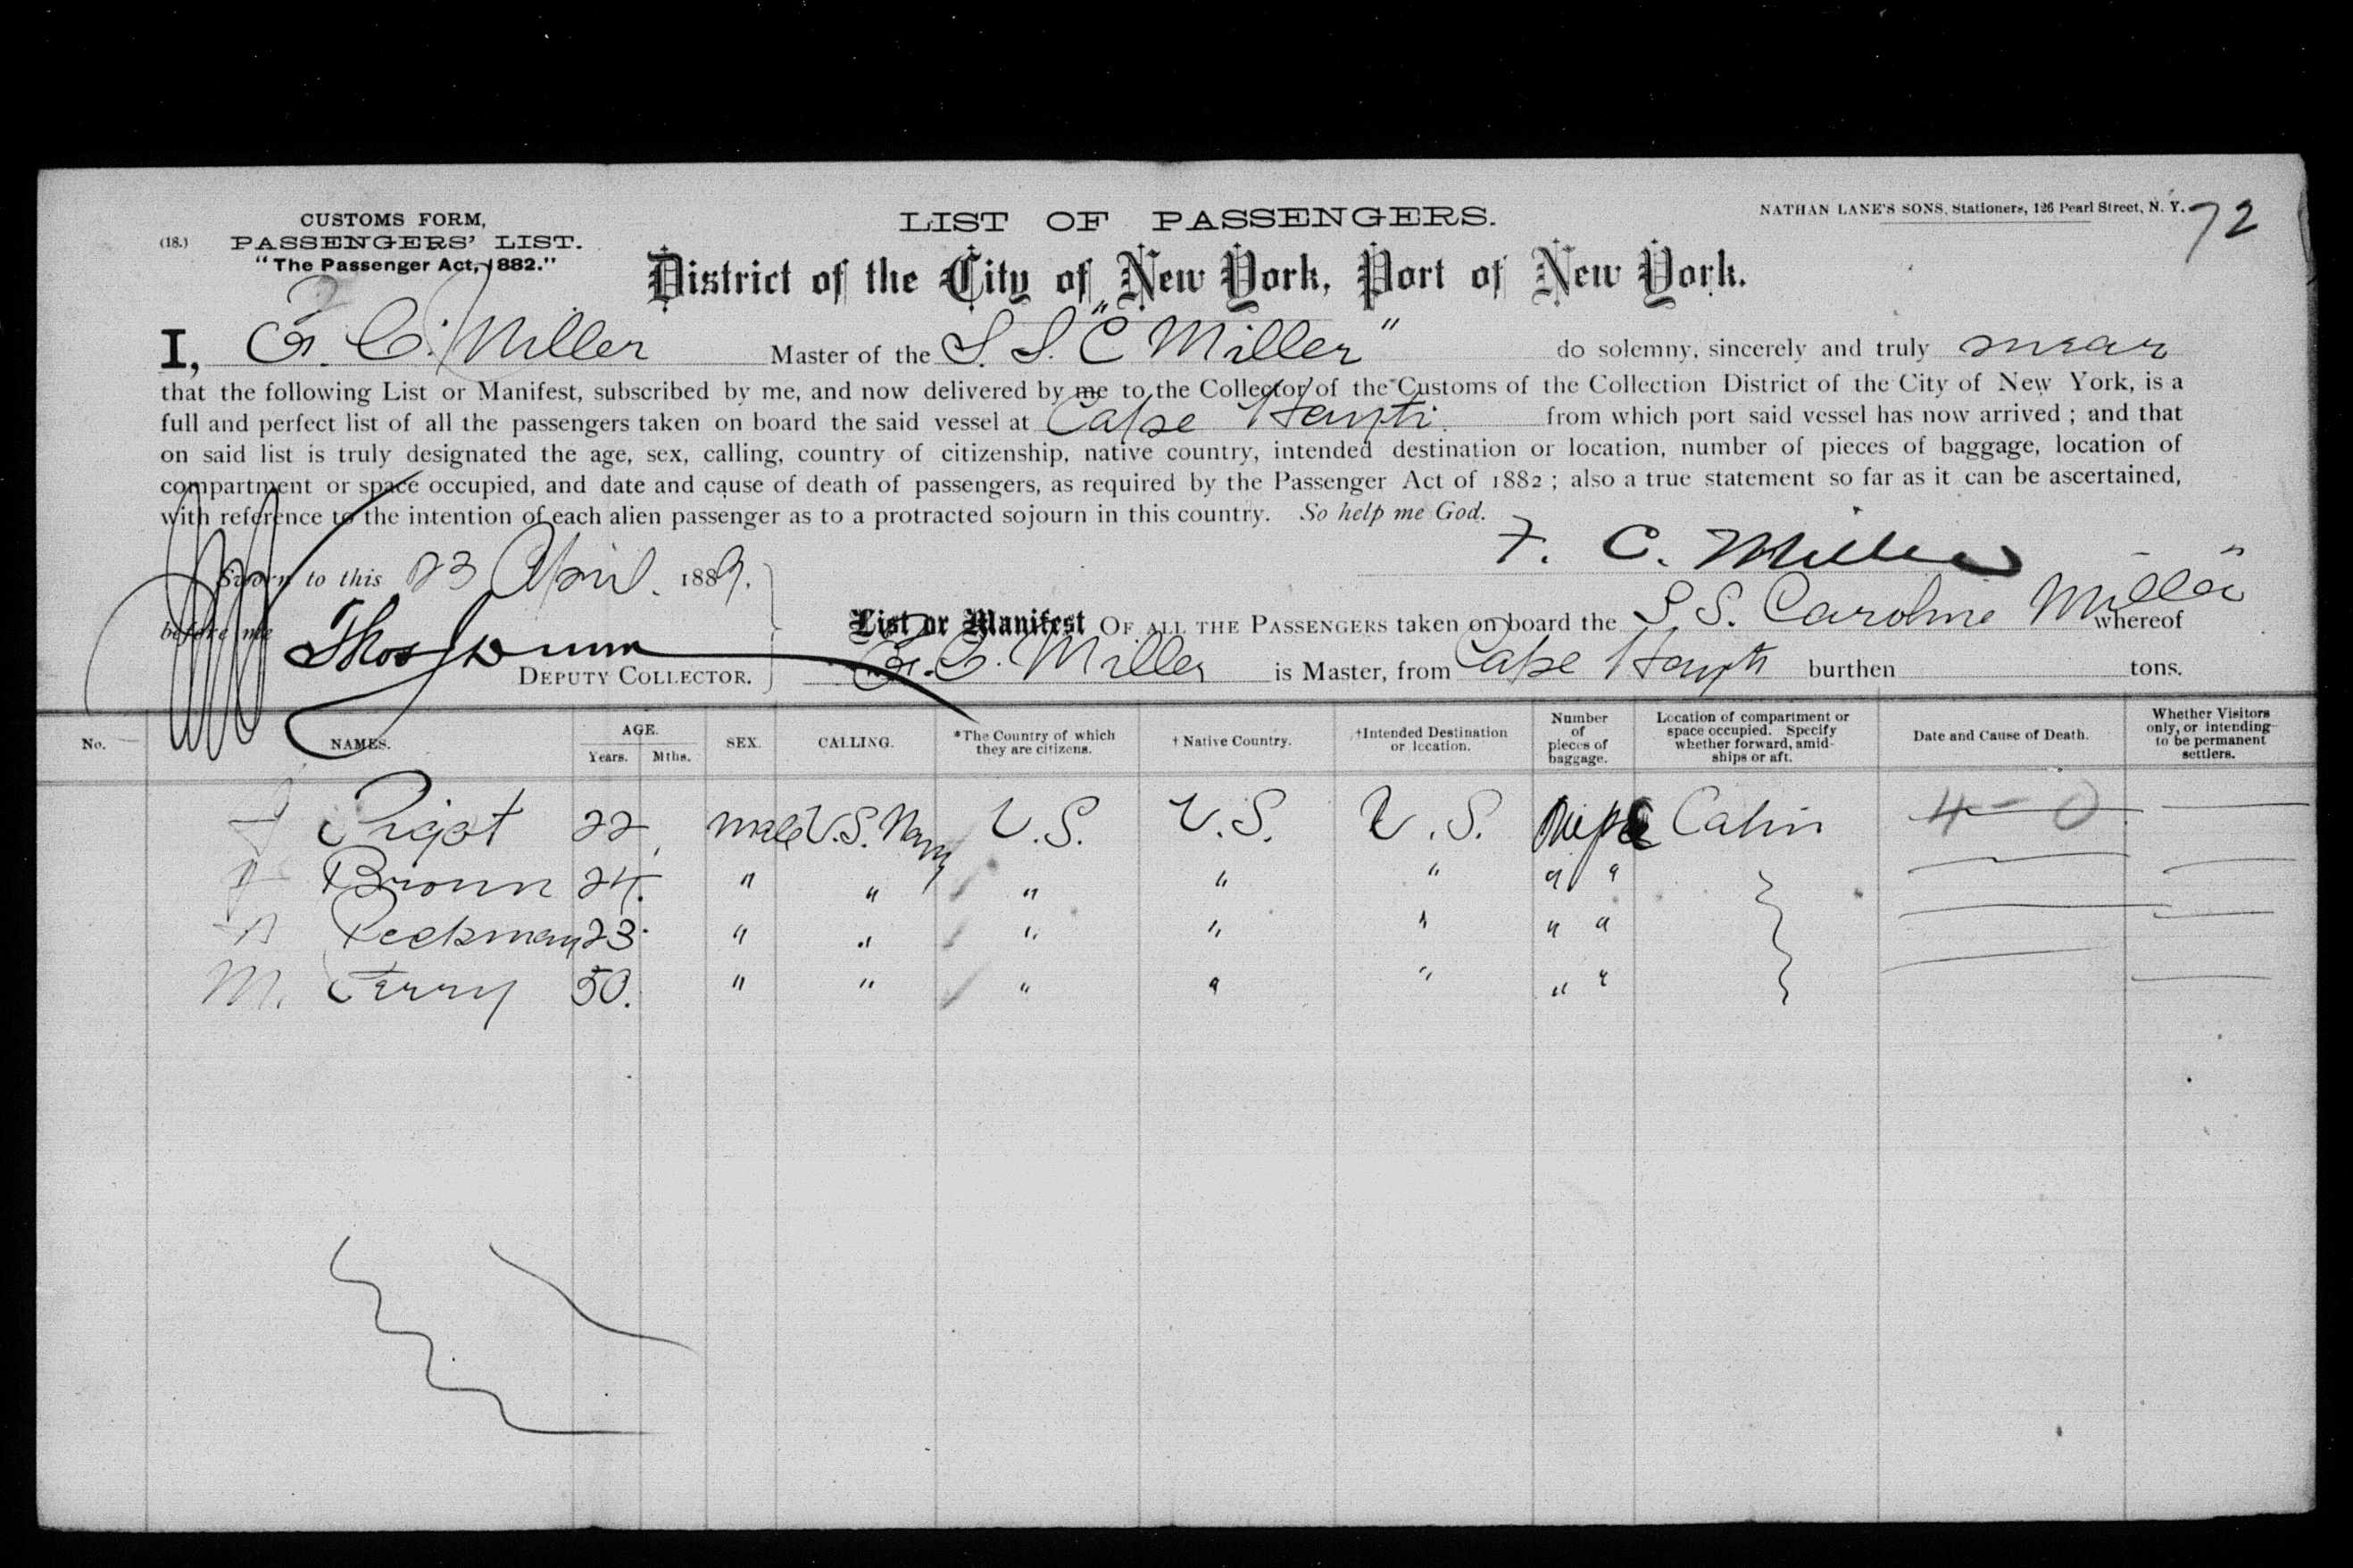 CUSTOMS FORM,
(18.) PASSENGERS' LIST.
"The Passenger Act, 1882."
LIST OF PASSENGERS.
NATHAN LANE'S SONS, Stationers, 126 Pearl Street, N. Y.
72
District of the City of New York, Port of New York.
I, G. C. Miller Master of the S.S. "C Miller" do solemny, sincerely and truly swear
that the following List or Manifest, subscribed by me, and now delivered by me to the Collector of the Customs of the Collection District of the City of New York, is a
full and perfect list of all the passengers taken on board the said vessel at Cape Hayti. from which port said vessel has now arrived ; and that
on said list is truly designated the age, sex, calling, country of citizenship, native country, intended destination or location, number of pieces of baggage, location of
compartment or space occupied, and date and cause of death of passengers, as required by the Passenger Act of 1882 ; also a true statement so far as it can be ascertained,
with reference to the intention of each alien passenger as to a protracted sojourn in this country. So help me God.
F. C. Miller
Sworn to this 23 April. 1889.
before me Thos Dunn
DEPUTY COLLECTOR.
List or Manifest OF ALL THE PASSENGERS taken on board the S.S. Caroline Miller whereof
G. C. Miller is Master, from Cape Hayti burthen tons.
No. NAMES. AGE. Years. Mths. SEX. CALLING. *The Country of which they are citizens. † Native Country. †Intended Destination or location. Number of pieces of baggage. Location of compartment or space occupied. Specify whether forward, amidships or aft. Date and Cause of Death. Whether Visitors only, or intending to be permanent settlers.
Pigot 22 male U.S. Navy U.S. U.S. U.S. Cabin 4 - 0
Brown 24. " " " " " " "
Peckman 23. " " " " " " "
M. Perry 50. " " " " " " "